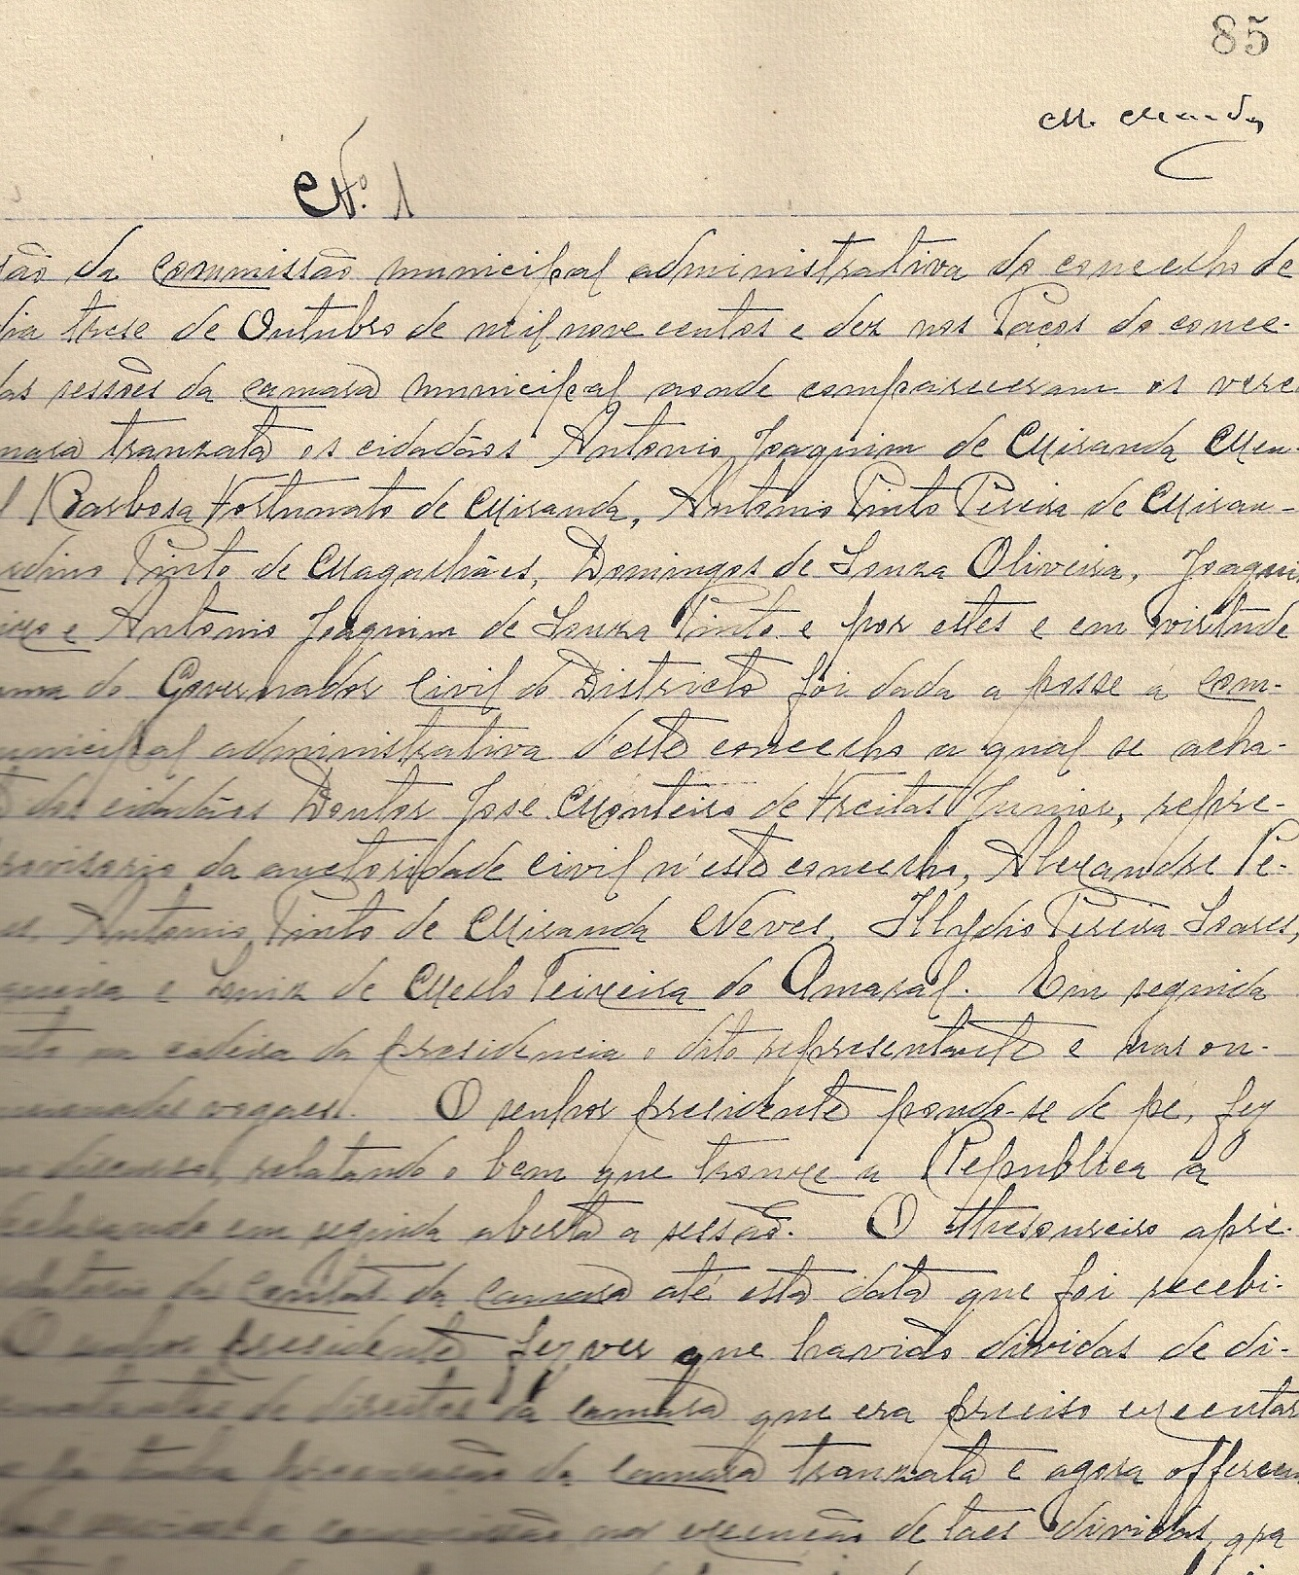 85
M. Mendes
Nº. 1
são da commissão municipal administrativa do concelho de
dia trese de Outubro de mil nove centos e dez nos Paços do conce-
das sessões da camara municipal aonde compareceram os verea
mara tranzata os cidadãos Antonio Joaquim de Miranda Men-
l Barbosa Fortunato de Miranda, Antonio Pinto Pereira de Miran-
dino Pinto de Magalhães, Domingos de Souza Oliveira, Joaquim
eiro e Antonio Joaquim de Souza Pinto e por estes e em virtude
ama do Governador Civil do Districto foi dada a posse á com-
unicipal administrativa d'este concelho a qual se acha-
dos cidadãos Doutor José Monteiro de Freitas Junior, repre-
rovisorio da auctoridade civil n'este concelho, Alexandre Pe-
Antonio Pinto de Miranda Neves, Illydio Pereira Soares,
e Luiz de Mello Teixeira do Amaral. Em seguida
na cadeira da presidencia o dito representante e nas ou-
vogaes. O senhor presidente pondo-se de pé, fez
discurso, relatando o bem que trouxe a Republica a
em seguida aberta a sessão. O thesoureiro apre-
da camara até esta data que foi recebi-
O senhor presidente fez ver que havido dividas de di-
da camara que era preciso executar
da camara tranzata e agora offerecen
na execução de taes dividas, qra